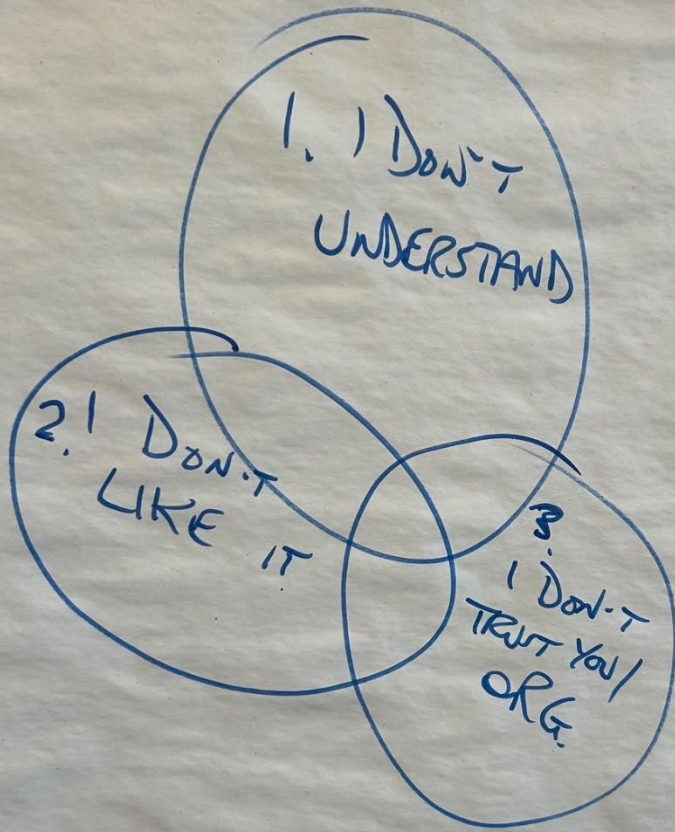 1. I DON'T
UNDERSTAND
2. I DON'T
LIKE IT
3.
I DON'T
TRUST YOU/
ORG.